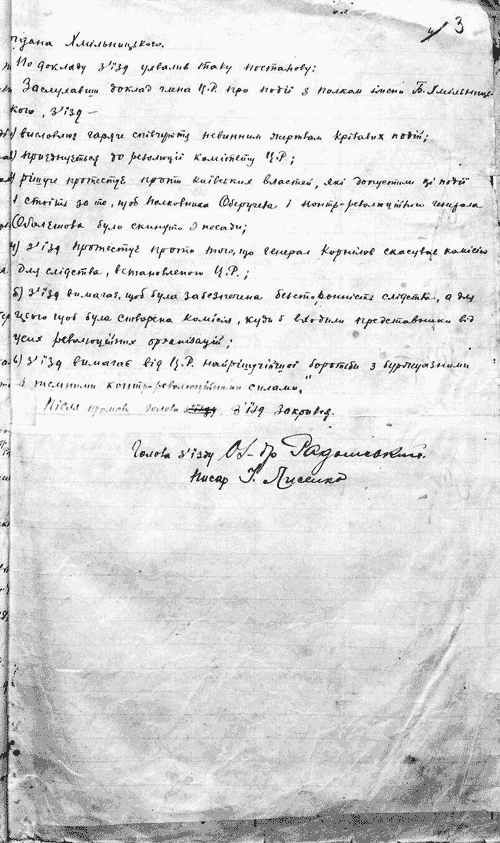 3
гдана Хмільницького.
По докладу з'їзд ухвалив таку постанову:
Заслухавши доклад члена Ц.Р. про події з полком імени Б. Хмільниць-
кого, з'їзд —
висловлює гаряче співчуття невинним жертвам крівавих подій;
приєднується до революції комітету Ц.Р.;
рішуче протестує проти київських властей, які допустили ці події
і стоїть за те, щоб полковника Оберучева і контр-революційного генерала
Оболешова було скинуто з посади;
4) з'їзд протестує проти того, що генерал Корнілов скасував комісію
для слідства, встановленої Ц.Р.;
5) з'їзд вимагає, щоб була забезпечена безсторонність слідства, а для
цього щоб була створена комісія, куди б входили представники від
усіх революційних організацій;
6) з'їзд вимагає від Ц.Р. найрішучійшої боротьби з буржуазними
і темними контр-революційними силами."
Після промови голови з'їзд закрився.
Голова з'їзду Радошевський.
Писар І. Лисенко